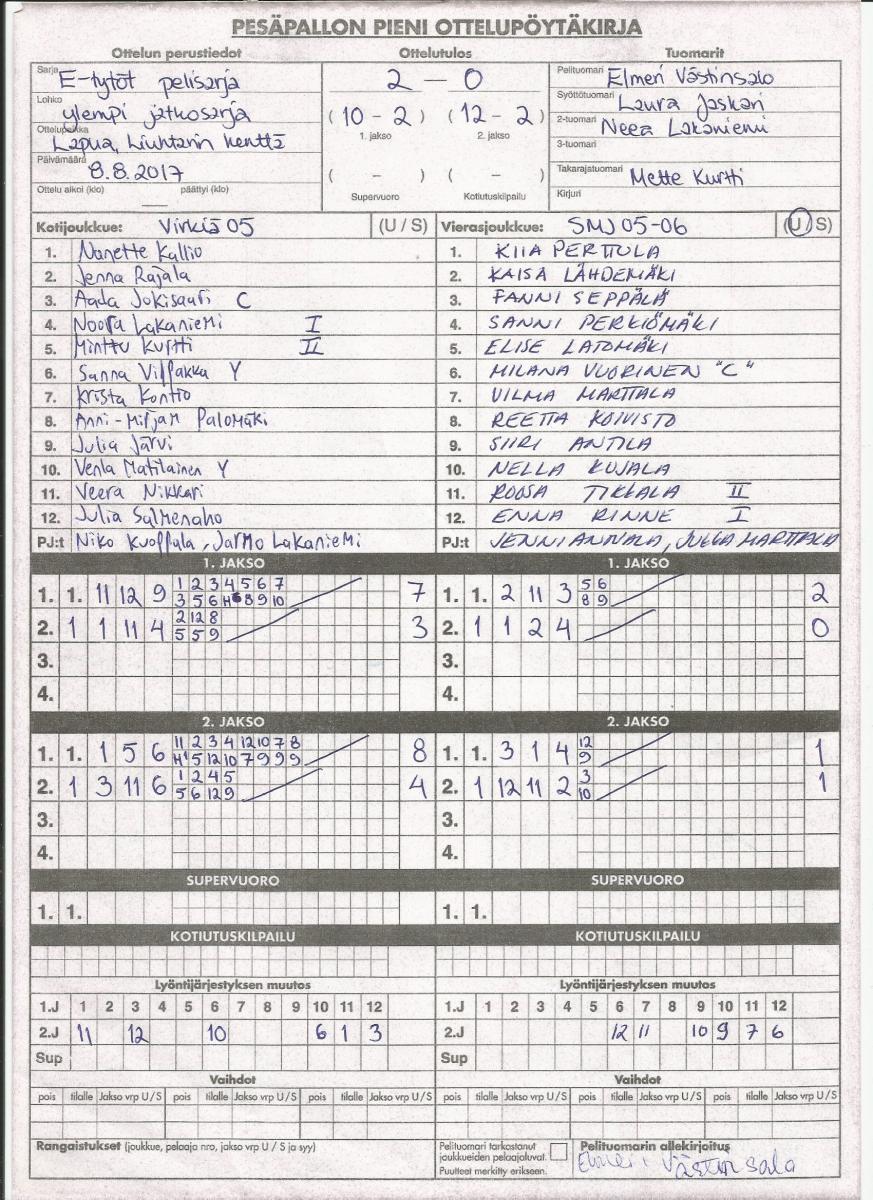 PESÄPALLON PIENI OTTELUPÖYTÄKIRJA
Ottelun perustiedot
Sarja E-tytöt pelisarja
Lohko ylempi jatkosarja
Ottelupaikka Lapua, Liuhtarin kenttä
Päivämäärä 8.8.2017
Ottelu alkoi (klo) päättyi (klo)
Ottelutulos
2 – 0
(10 - 2) (12 - 2)
1. jakso 2. jakso
( - ) ( - )
Supervuoro Kotiutuskilpailu
Tuomarit
Pelituomari Elmeri Västinsalo
Syöttötuomari Laura Jaskari
2-tuomari Neea Lakaniemi
3-tuomari
Takarajatuomari Mette Kurtti
Kirjuri
Kotijoukkue: Virkiä 05 (U / S)
1. Nanette Kallio
2. Jenna Rajala
3. Aada Jokisaari C
4. Noora Lakaniemi I
5. Minttu Kurtti II
6. Sanna Viljakka Y
7. Krista Kontio
8. Anni-Mirjam Palomäki
9. Julia Järvi
10. Venla Matilainen Y
11. Veera Nikkari
12. Julia Salmenaho
PJ:t Niko Kuoppala, Jarmo Lakaniemi
Vierasjoukkue: SMJ 05-06 (U / S)
1. KIIA PERTTULA
2. KAISA LÄHDEMÄKI
3. FANNI SEPPÄLÄ
4. SANNI PERKIÖMÄKI
5. ELISE LATOMÄKI
6. MILANA VUORINEN "C"
7. VILMA MARTTALA
8. REETTA KOIVISTO
9. SIIRI ANTILA
10. NELLA KUJALA
11. ROOSA TIKKALA II
12. ENNA RINNE I
PJ:t JENNI ANNALA, JUKKA MARTTALA
1. JAKSO
1. 1. 11 12 9 1 2 3 4 5 6 7 7
3 5 6 8 9 10
2. 1 1 11 4 2 12 8 3
5 5 9
3.
4.
1. JAKSO
1. 1. 2 11 3 5 6 2
8 9
2. 1 1 2 4 0
3.
4.
2. JAKSO
1. 1. 1 5 6 11 2 3 4 12 10 7 8 8
H1 5 12 10 7 9 9 9
2. 1 3 11 6 1 2 4 5 4
5 6 12 9
3.
4.
2. JAKSO
1. 1. 3 1 4 12 1
9
2. 1 12 11 2 3 1
10
3.
4.
SUPERVUORO
1. 1.
SUPERVUORO
1. 1.
KOTIUTUSKILPAILU
KOTIUTUSKILPAILU
Lyöntijärjestyksen muutos
1.J 1 2 3 4 5 6 7 8 9 10 11 12
2.J 11 12 10 6 1 3
Sup
Lyöntijärjestyksen muutos
1.J 1 2 3 4 5 6 7 8 9 10 11 12
2.J 12 11 10 9 7 6
Sup
Vaihdot
pois tilalle Jakso vrp U/S pois tilalle Jakso vrp U/S pois tilalle Jakso vrp U/S
Vaihdot
pois tilalle Jakso vrp U/S pois tilalle Jakso vrp U/S pois tilalle Jakso vrp U/S
Rangaistukset (joukkue, pelaaja nro, jakso vrp U / S ja syy)
Pelituomari tarkastanut
joukkueiden pelaajaluvat.
Puutteet merkitty erikseen.
Pelituomarin allekirjoitus
Elmeri Västinsalo